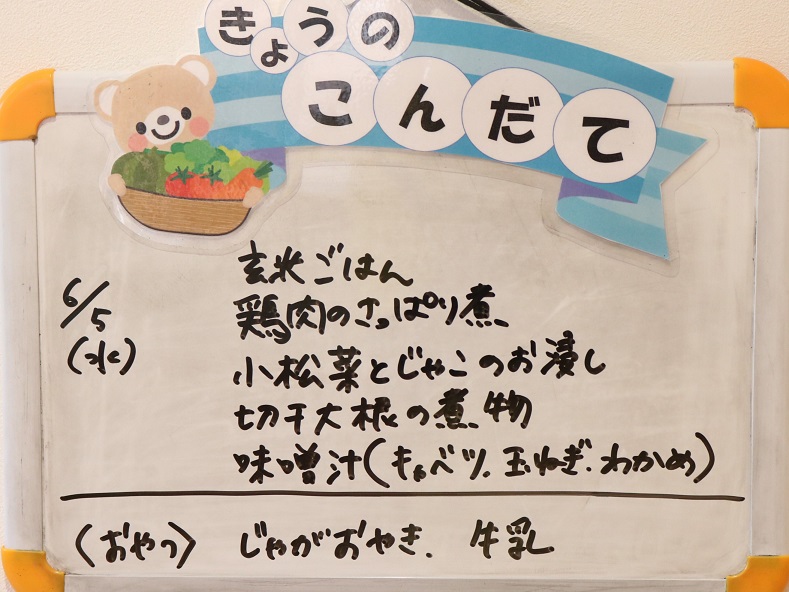 きょうの
こんだて
6/5
(水)
玄米ごはん
鶏肉のさっぱり煮
小松菜とじゃこのお浸し
切干大根の煮物
味噌汁(キャベツ.玉ねぎ.わかめ)
〈おやつ〉 じゃがおやき. 牛乳